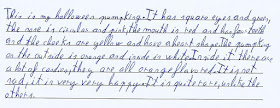 This is my halloween pumpking. It has square eyes and green,
the nose is circular and pink, the mouth is red and has four teeth
and the cheeks are yellow and have a heart shape. The pumpking
on the outside is orange and inside is white. Inside it there are
a lot of candies, they are all orange flavored. It is not
sad, it is very very happy. It is quite rare, unlike the
others.